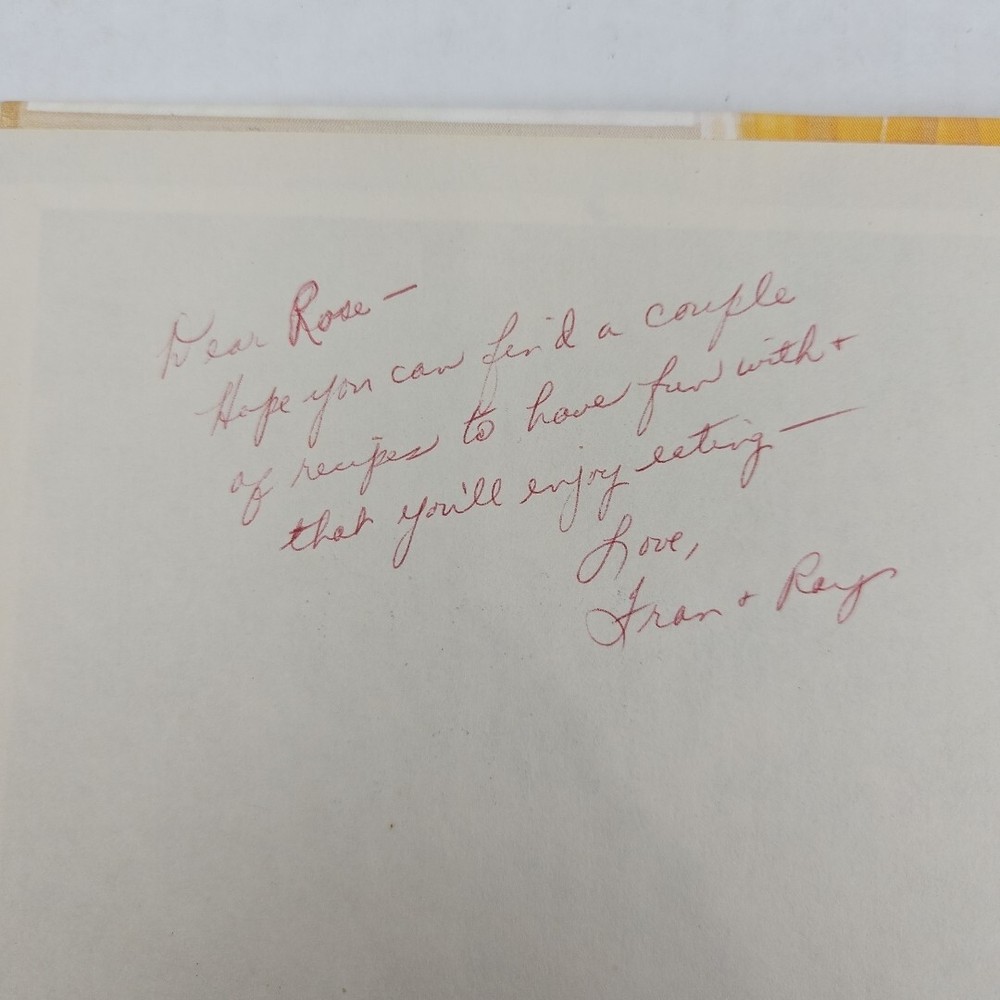 Dear Rose —
Hope you can find a couple
of recipes to have fun with +
that you'll enjoy eating —
Love,
Fran + Ray